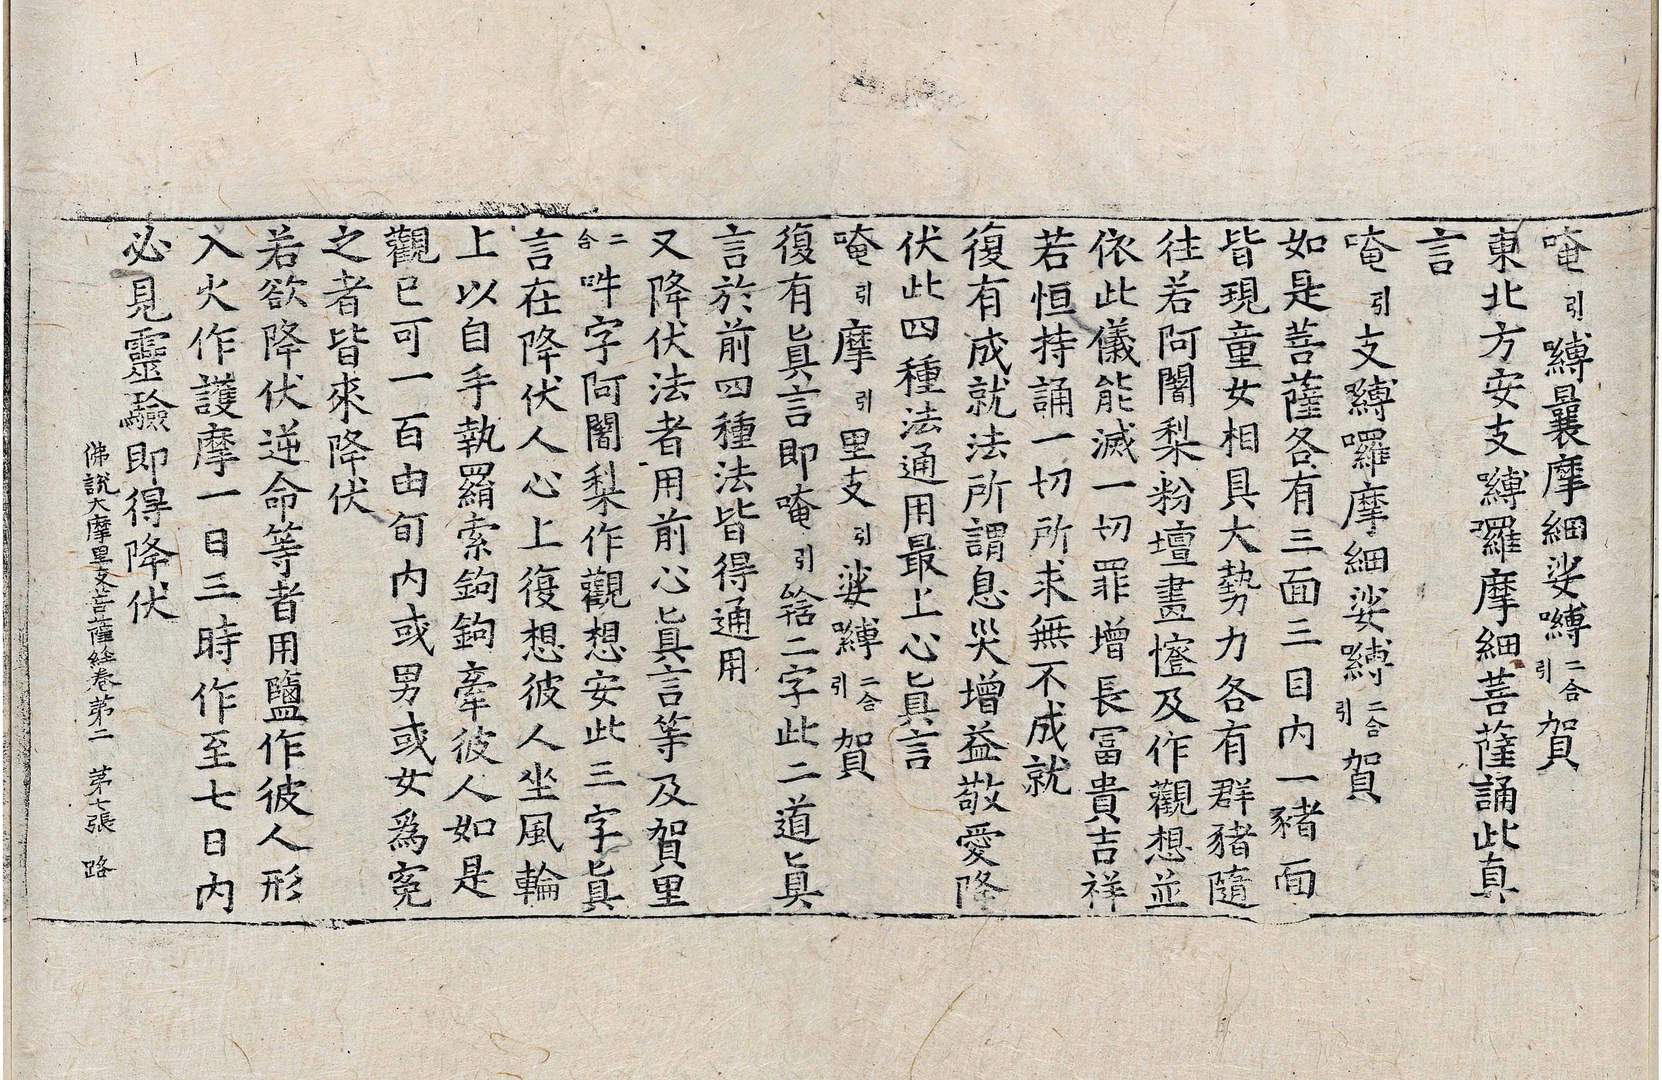 唵引嚩曩摩細娑嚩二合引賀
東北方安支嚩囉摩細菩薩誦此真
言
唵引支嚩囉摩細娑嚩二合引賀
如是菩薩各有三面三目內一豬面
皆現童女相具大勢力各有群豬隨
往若阿闍梨粉壇畫㡧及作觀想並
依此儀能滅一切罪增長冨貴吉祥
若恒持誦一切所求無不成就
復有成就法所謂息災增益敬愛降
伏此四種法通用最上心真言
唵引摩引里支引娑嚩二合引賀
復有真言即唵引㗭二字此二道真
言於前四種法皆得通用
又降伏法者用前心真言等及賀里
二合吽字阿闍梨作觀想安此三字真
言在降伏人心上復想彼人坐風輪
上以自手執羂索鉤鉤牽彼人如是
觀已可一百由旬內或男或女為寃
之者皆來降伏
若欲降伏逆命等者用鹽作彼人形
入火作護摩一日三時作至七日內
必見靈驗即得降伏
佛說大摩里支菩薩經卷第二 第七張 路